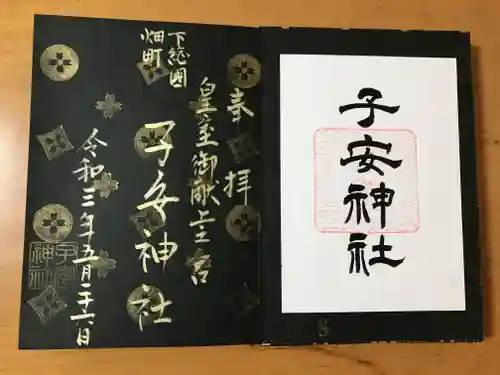 奉拝
皇室御献上之宮
下総國
畑町
子安神社
令和三年五月二十六日
子安神社
子安神社